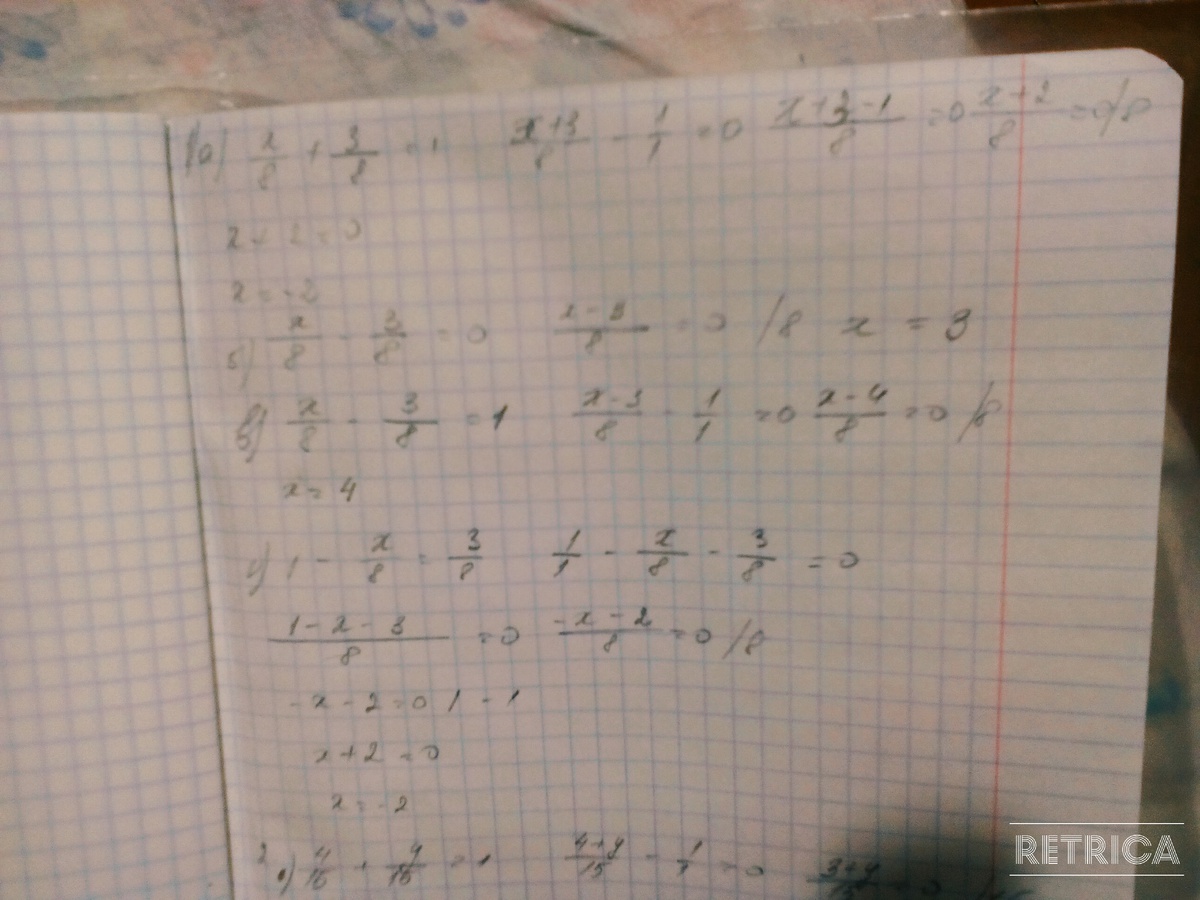 1а) x/8 + 3/8 = 1 x+3/8 - 1/1 = 0 x+3-1/8 = 0 x+2/8 = 0 /8
x + 2 = 0
x = -2
б) x/8 - 3/8 = 0 x-3/8 = 0 /8 x = 3
в) x/8 - 3/8 = 1 x-3/8 - 1/1 = 0 x-4/8 = 0 /8
x = 4
г) 1 - x/8 = 3/8 1/1 - x/8 - 3/8 = 0
1-x-3/8 = 0 -x-2/8 = 0 /8
-x - 2 = 0 / -1
x + 2 = 0
x = -2
2 4/15 + y/15 = 1 4+y/15 - 1/1 = 0 3+y/15 = 0
RETRICA